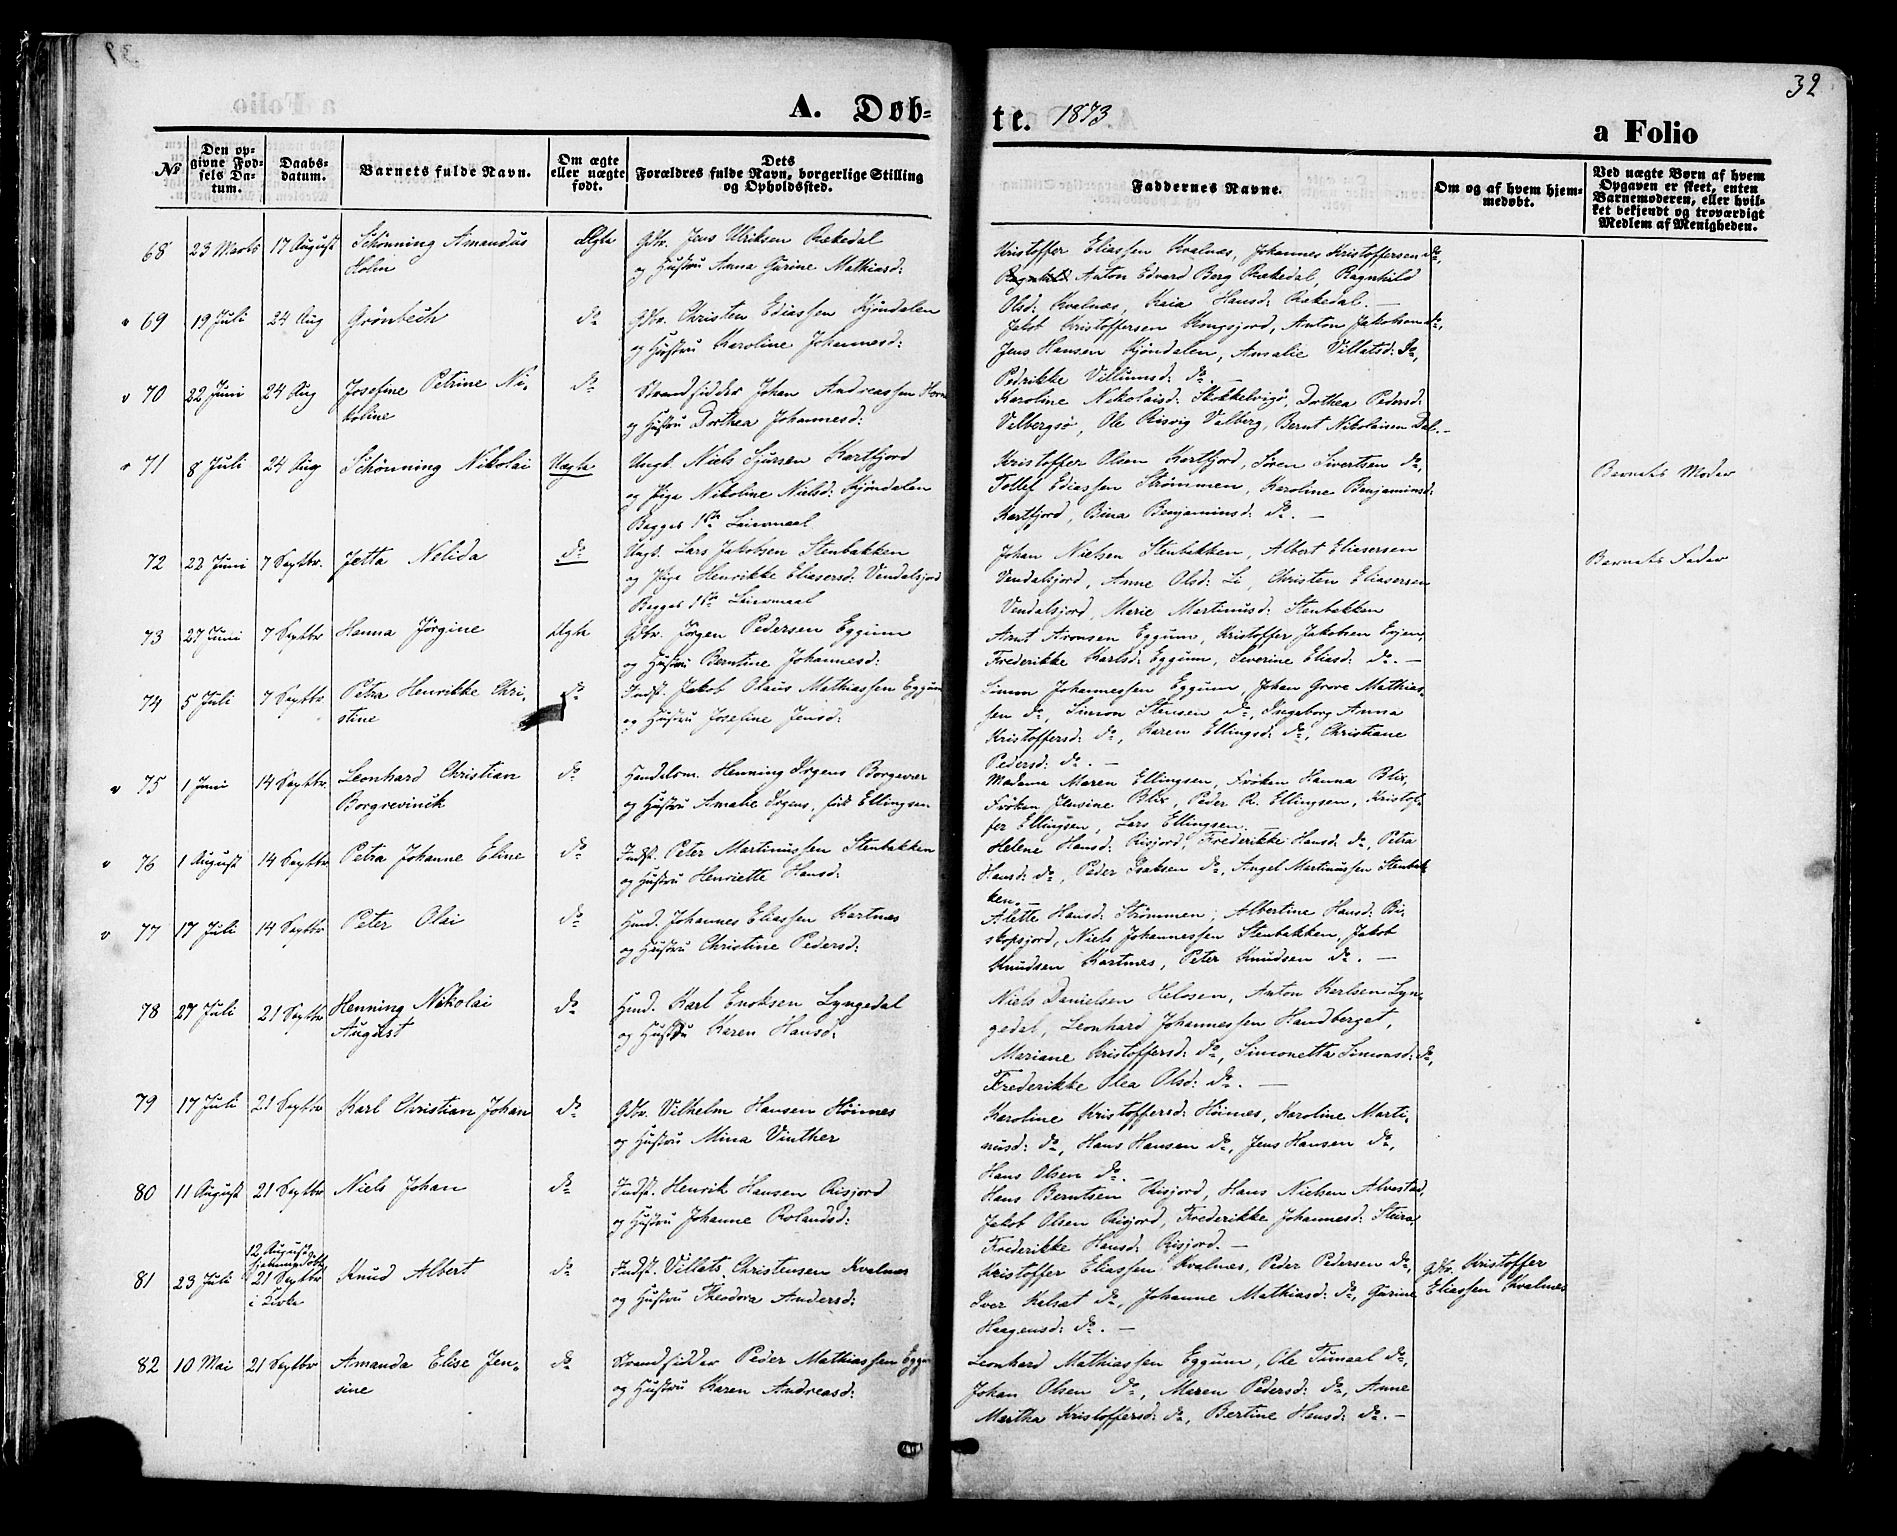 32
A. Døb-
te. 1873
a Folio
№
Den op-
givne Fød-
sels Da-
tum.
Daabs-
datum.
Barnets fulde Navn.
Om ægte
eller uægte
født.
Dets
Forældres fulde Navn, borgerlige Stilling
og Opholdssted.
Faddernes Navne.
Om og af hvem hjem-
medøbt.
Ved uægte Børn af hvem
Opgaven er skeet, enten
Barnemoderen, eller hvil-
ket bekjendt og troværdigt
Medlem af Menigheden.
68 23 Marts 17 August Schønning Amandus Ægte Gdbr. Jens Ulriksen Rækedal
Holm og Hustru Anna Gurine Mathiasd:
Kristoffer Eliassen Kvalnæs, Johannes Kristoffersen do,
Anton Edvard Berg Rækedal, Ragnhild
Olsd: Kvalnæs, Kaia Hansd: Rækedal. —
69 19 Juli 24 Aug Grønbech do Gdbr. Christen Ediassen Kjøndalen
og Hustru Karoline Johannesd:
Jakob Kristoffersen Kongsjord, Anton Jakobsen do,
Jens Hansen Kjøndalen, Amalie Villatsd: do,
Pedrikke Villumsd: do. —
70 22 Juni 24 Aug Josefine Petrine Ni- do Strandsidder Johan Andreassen Horn
koline og Hustru Dorthea Johannesd:
Karoline Nikolaisd: Stokkelvigø, Dorthea Pedersd:
Valbergsø, Ole Risvig Valberg, Bernt Nikolaisen Dal. —
71 8 Juli 24 Aug Schønning Nikolai Uægte Ungk. Niels Sjursen Kartfjord
og Pige Nikoline Nielsd: Kjøndalen
Begges 1ste Leiermaal
Kristoffer Olsen Kartfjord, Søren Sivertsen do,
Tollef Ediassen Strømmen, Karoline Benjaminsd:
Kartfjord, Bina Benjaminsd: do. —
Barnets Moder
72 22 Juni 7 Septbr. Jetta Nelida do Ungk. Lars Jakobsen Stenbakken
og Pige Henrikke Eliasersd: Vendalsjord
Begges 1ste Leiermaal
Johan Nielsen Stenbakken, Albert Eliasersen
Vendalsjord, Anne Olsd: Li, Christen Eliasersen
Vendalsjord, Marie Martinusd: Stenbakken
Barnets Fader
73 27 Juni 7 Septbr Hanna Jørgine Ægte Gdbr. Jørgen Pedersen Eggum
og Hustru Berntine Johannesd:
Arnt Aronsen Eggum, Kristoffer Jakobsen Evjen,
Frederikke Karlsd: Eggum, Severine Eliasd: do. —
74 5 Juli 7 Septbr Petra Henrikke Chri- do Indst. Jakob Olaus Mathiassen Eggum
stine og Hustru Josefine Jensd:
Simon Johannessen Eggum, Johan Grove Mathias-
sen do, Simon Stensen do, Ingeborg Anna
Kristoffersd: do, Karen Ellingsd: do, Christiane
Pedersd: do. —
75 1 Juni 14 Septbr. Leonhard Christian do Handelsm. Henning Irgens Borgevær
Borgrevinck og Hustru Amalie Irgens, født Ellingsen
Madame Maren Ellingsen, Frøken Hanna Blix,
Frøken Jensine Blix, Peder R. Ellingsen, Kristof-
fer Ellingsen, Lars Ellingsen. —
76 1 August 14 Septbr Petra Johanne Eline do Indst. Peter Martinussen Stenbakken
og Hustru Henriette Hansd:
Helene Hansd: Risjord, Frederikke Hansd: do, Petra
Hansd: do, Peder Isaksen do, Angel Martinussen Stenbak-
ken. —
77 17 Juli 14 Septbr Peter Olai do Husd. Johannes Eliassen Kartnes
og Hustru Christine Pedersd:
Alette Hansd: Strømmen, Albertine Hansd: Bi-
skopsjord, Niels Johannessen Stenbakken, Jakob
Knudsen Kartnes, Peter Knudsen do. —
78 27 Juli 21 Septbr Henning Nikolai do Husd. Karl Enoksen Lyngedal
August og Hustru Karen Hansd:
Niels Danielsen Helosen, Anton Karlsen Lyn-
gedal, Leonhard Johannessen Handberget,
Mariane Kristoffersd: do, Simonetta Simonsd: do,
Frederikke Olea Olsd: do. —
79 17 Juli 21 Septbr Karl Christian Johan do Gdbr. Vilhelm Hansen Høines
og Hustru Mina Vinther
Karoline Kristoffersd: Høines, Karoline Marti-
nusd: do, Hans Hansen do, Jens Hansen do,
Hans Olsen do. —
80 11 August 21 Septbr Niels Johan do Indst. Henrik Hansen Risjord
og Hustru Johanne Rolandsd:
Hans Berntsen Risjord, Hans Nielsen Alvestad,
Jakob Olsen Risjord, Frederikke Johannesd: Steira
Frederikke Hansd: Risjord. —
12 August
hjemmedøbt
81 23 Juli 21 Septbr Knud Albert do Indst. Villats Christensen Kvalnes
i Kirke og Hustru Theodora Andersd:
Kristoffer Eliassen Kvalnes, Peder Pedersen do, Gdbr. Kristoffer
Iver Kalsat do, Johanne Mathiasd: do, Gurine Eliassen Kvalnes
Haagensd: do. —
82 10 Mai 21 Septbr Amanda Elise Jen- do Strandsidder Peder Mathiassen Eggum
sine og Hustru Karen Andreasd:
Leonhard Mathiassen Eggum, Ole Timaal do,
Johan Olsen do, Maren Pedersd: do, Anne
Martha Kristoffersd: do, Bertine Hansd: do. —